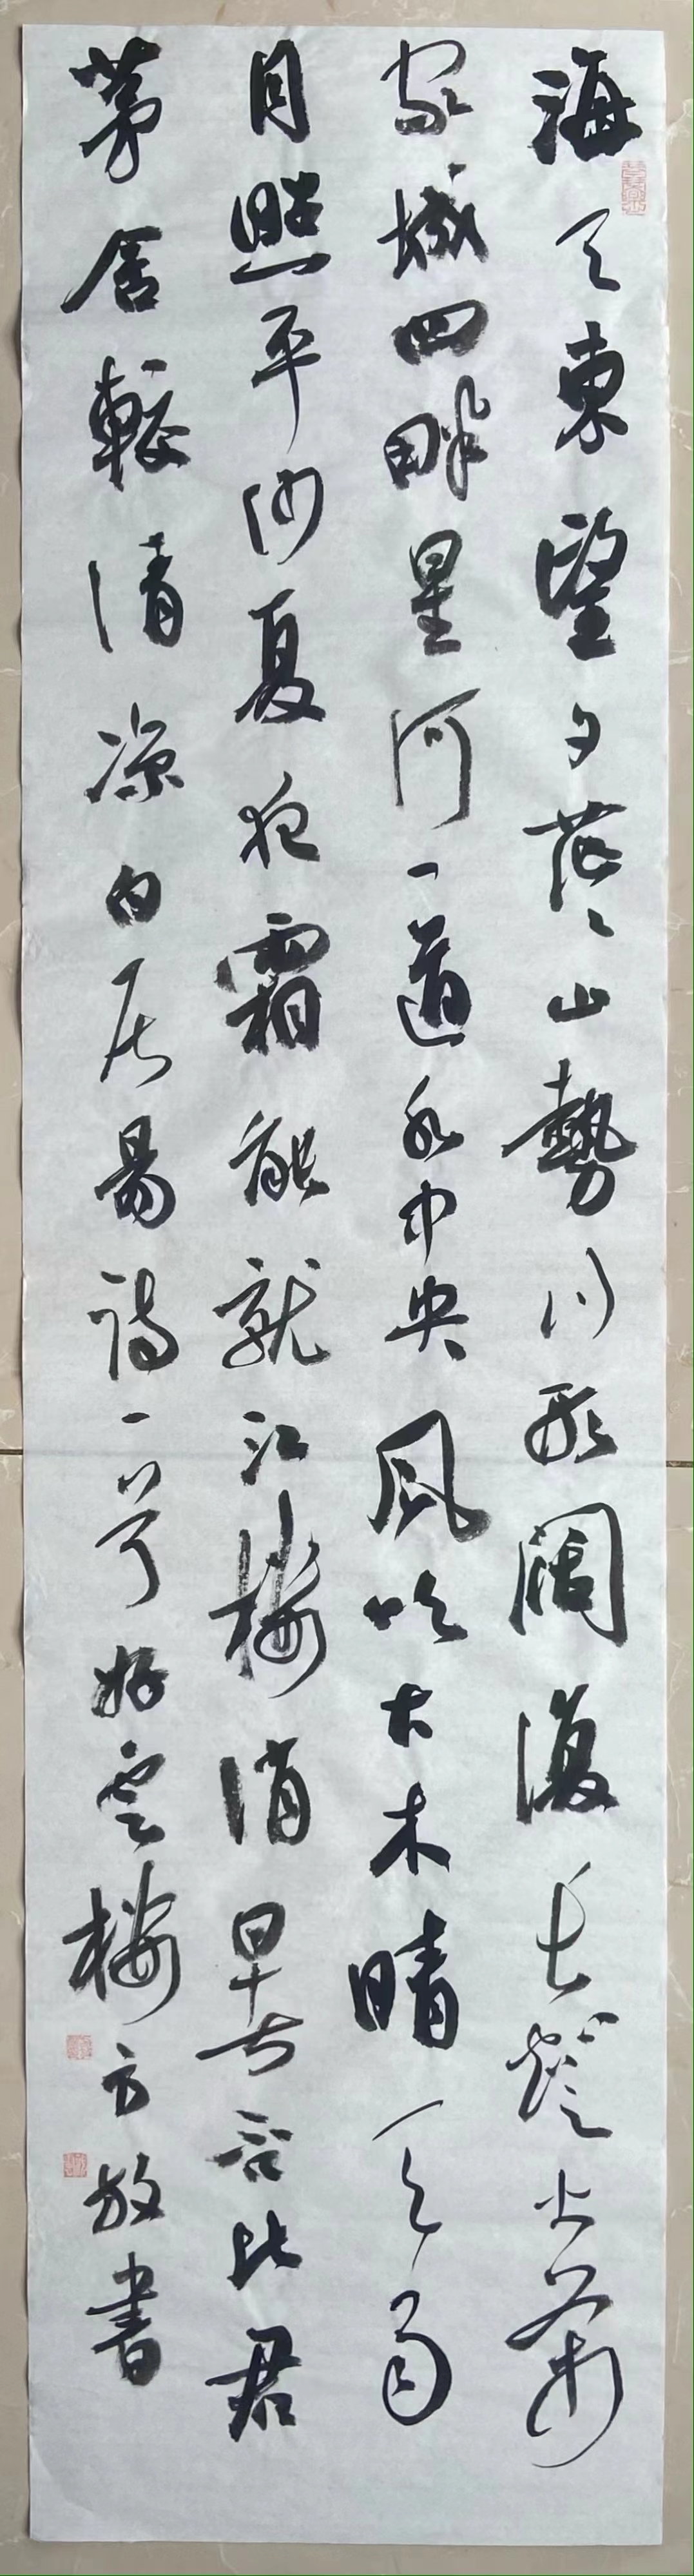 海天東望夕茫〻山勢川形阔復長燈火萬
家城四畔星河一道水中央風吹古木晴天雨
月照平沙夏夜霜能就江樓消暑否比君
茅舍較清凉白居易詩一首好雲樓方放書